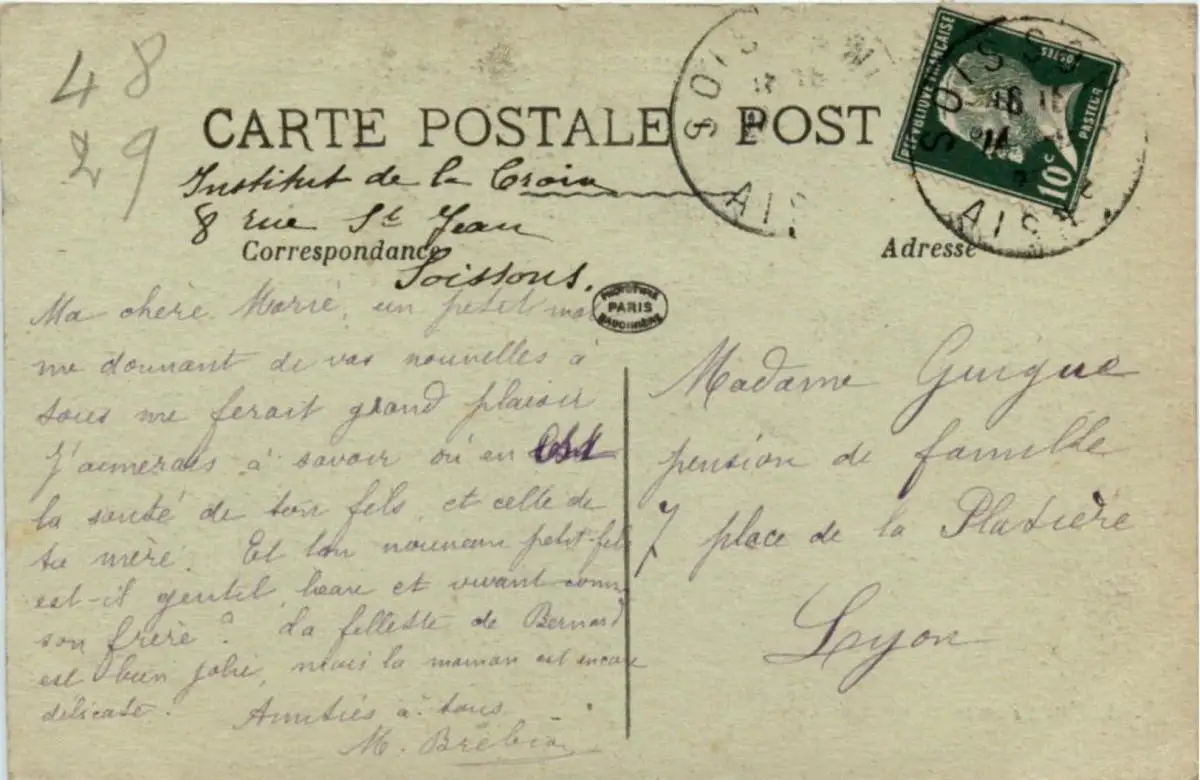 48
29
CARTE POSTALE POST
RÉPUBLIQUE FRANÇAISE
POSTES
PASTEUR
10c
SOISSONS
AISNE
Institut de la Croix
8 rue St Jean
Correspondance
Soissons.
Adresse
PHOTOTYPIE
PARIS
BAUDINIÈRE
Ma chère Marie, un petit mot
me donnant de vos nouvelles à
tous me ferait grand plaisir
J'aimerais à savoir où en est
la santé de ton fils, et celle de
ta mère. Et ton nouveau petit-fils
est-il gentil, beau et vivant comme
son frère? La fillette de Bernard
est bien jolie, mais la maman est encore
délicate. Amitiés à tous
M. Brébion
Madame Guigue
pension de famille
7 place de la Platière
Lyon